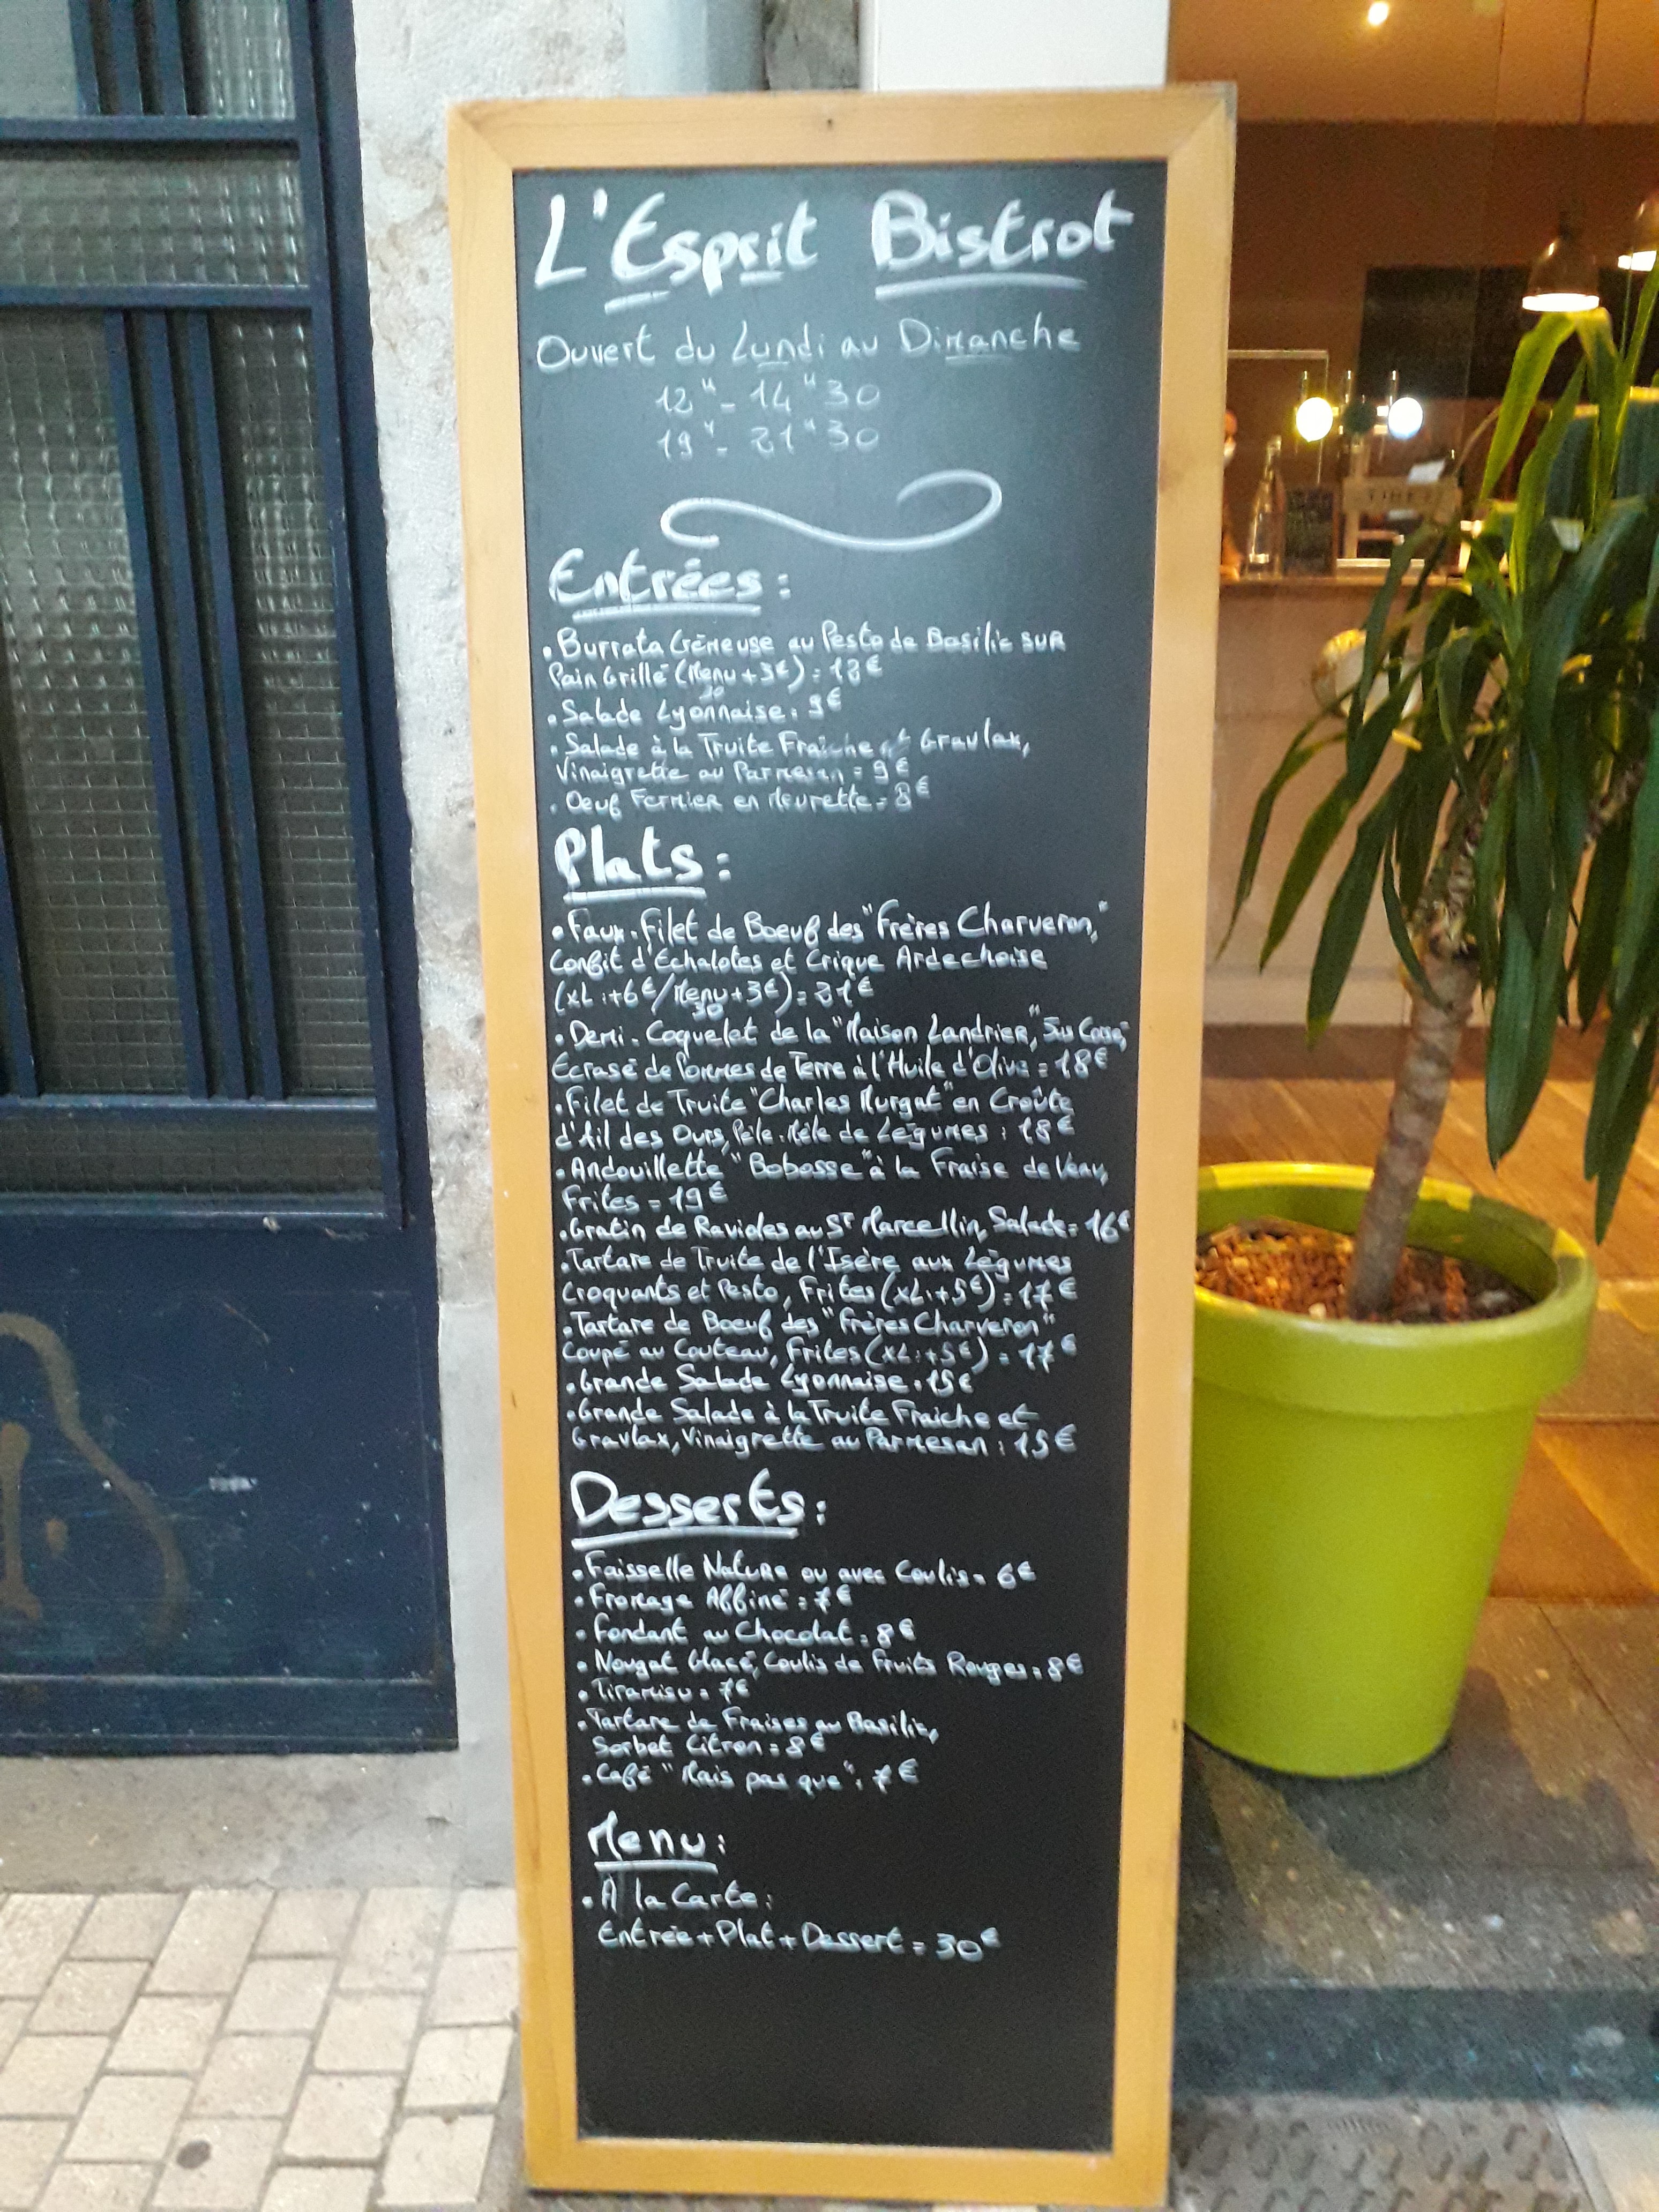 L'Esprit Bistrot
Ouvert du Lundi au Dimanche
12H - 14H30
19H - 21H30
Entrées :
• Burrata Crémeuse au Pesto de Basilic SUR
Pain Grillé (Menu + 3€) :
30
• Salade Lyonnaise : 9€
• Salade à la Truite Fraîche et Gravlax,
Vinaigrette au Parmesan = 9€
• Oeuf Fermier en Meurette = 8€
Plats :
• Faux-Filet de Boeuf des "Frères Charveron,"
Confit d'Échalotes et Crique Ardechoise
(XL : +6€/Menu+3€) = 21€
30
• Demi-Coquelet de la "Maison Landrier,"
Écrasé de Pommes de Terre à l'Huile d'Olive = 18€
• Filet de Truite "Charles Murgat" en Croûte
d'Ail des Ours, Pêle-Mêle de Légumes : 18€
• Andouillette "Bobosse" à la Fraise de Veau,
Frites = 19€
• Gratin de Ravioles au ST Marcellin, Salade = 16€
• Tartare de Truite de l'Isère aux Légumes
Croquants et Pesto, Frites (XL : +5€) = 17€
• Tartare de Boeuf des "Frères Charveron"
Coupé au Couteau, Frites (XL : +5€) = 17€
• Grande Salade Lyonnaise : 15€
• Grande Salade à la Truite Fraiche et
Gravlax, Vinaigrette au Parmesan : 15€
Desserts :
• Faisselle Nature ou avec Coulis = 6€
• Fromage Affiné = 7€
• Fondant au Chocolat = 8€
• Nougat Glacé, Coulis de Fruits Rouges = 8€
• Tiramisu = 7€
• Tartare de Fraises au Basilic,
Sorbet Citron = 8€
• Café "Mais pas que" : 7€
Menu :
• À la Carte :
Entrée + Plat + Dessert = 30€